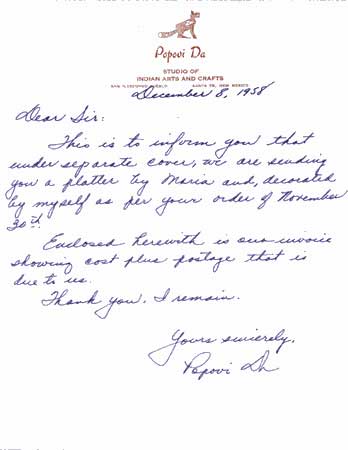 Popovi Da
STUDIO OF
INDIAN ARTS AND CRAFTS
SAN ILDEFONSO PUEBLO SANTA FE, NEW MEXICO
December 8, 1958
Dear Sir:
This is to inform you that
under separate cover, we are sending
you a platter by Maria and, decorated
by myself as per your order of November
30th.
Enclosed herewith is our invoice
showing cost plus postage that is
due to us.
Thank you, I remain.
Yours sincerely,
Popovi Da